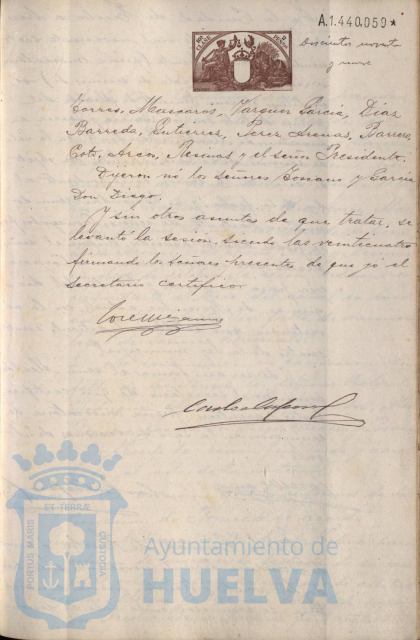 A.1.440.059*
Doscientos noventa
y nueve
Torres, Mascarós, Vazquez Garcia, Diaz
Barreda, Gutierrez, Perez Arenas, Barrero,
Coto, Arcos, Resinas y el señor Presidente.
Dijeron nó los señores Cossano y Garcia
Don Diego.
Y sin otros asuntos de que tratar, se
levantó la sesión siendo las veinticuatro
firmando los señores presentes de que yó el
Secretario certifico.
PORTUS MARIS
ET TERRÆ
CUSTODIA
Ayuntamiento de
HUELVA